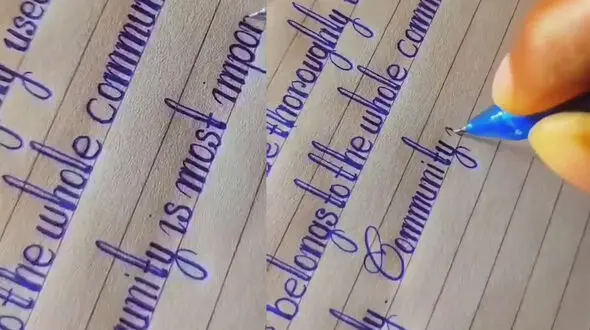 y use
o the whole commun
munity is most impor
e thoroughly
belongs to the whole comm
ly Community